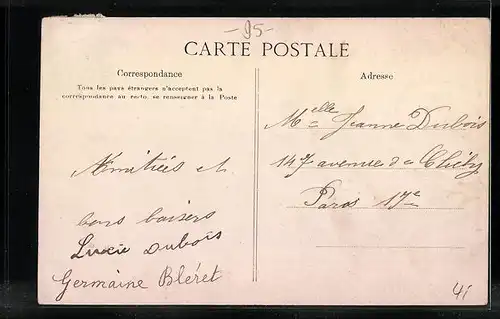 -95-
CARTE POSTALE
Correspondance
Tous les pays étrangers n'acceptent pas la
correspondance au recto, se renseigner à la Poste
Adresse
Melle Jeanne Dubois
147 avenue de Clichy
Paris 17e
Amitiés et
bons baisers
Lucie Dubois
Germaine Bléret
41